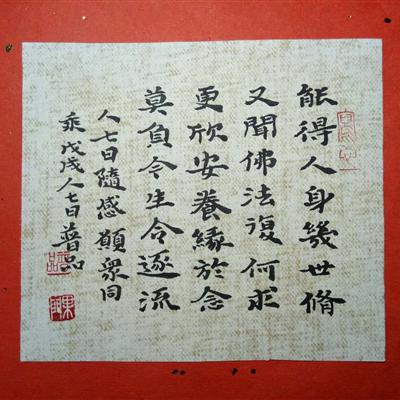 能得人身幾世脩
又聞佛法復何求
更欣安養緣於念
莫負今生令逐流
人七日隨感願眾同
乘戊戌人七日普品